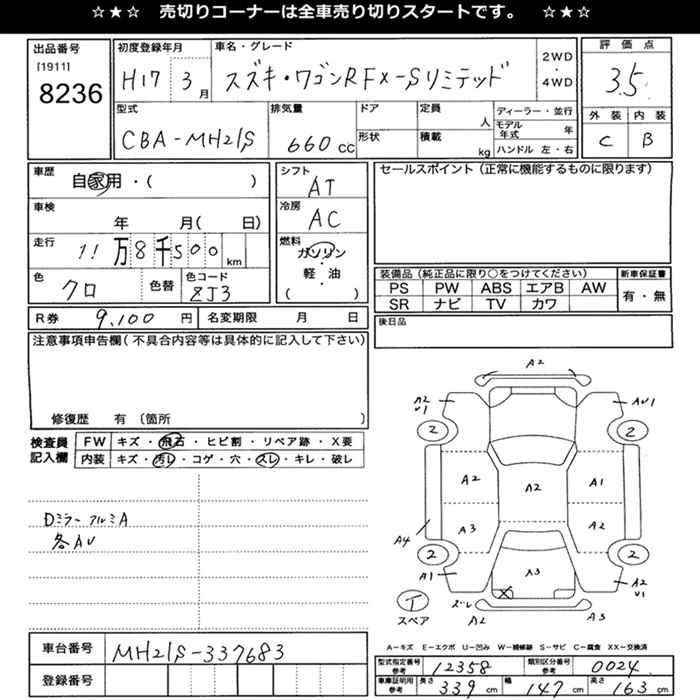 ☆★☆ 売切りコーナーは全車売り切りスタートです。 ☆★☆
出品番号
[1911]
8236
初度登録年月
H17 3月
車名・グレード
スズキ・ワゴンRFX-Sリミテッド
2WD
・
4WD
評価点
3.5
外装 内装
C B
型式
CBA-MH21S
排気量
660cc
ドア
形状
定員
人
積載
kg
ディーラー・並行
モデル年式 年
ハンドル 左・右
車歴
自家用・( )
車検
年 月( 日)
走行
11万8千500km
色
クロ
色替
色コード
ZJ3
シフト
AT
冷房
AC
燃料
ガソリン
・
軽・油
( )
セールスポイント(正常に機能するものに限ります)
装備品(純正品に限り○をつけてください)
PS PW ABS エアB AW
SR ナビ TV カワ
新車保証書
有・無
R券 9,100円 名変期限 月 日
後日品
注意事項申告欄(不具合内容等は具体的に記入して下さい)
修復歴 有〔箇所 〕
検査員記入欄
FW キズ・飛石・ヒビ割・リペア跡・X要
内装 キズ・汚レ・コゲ・穴・スレ・キレ・破レ
Dミラー アルミA
各AU
A2
A2
U1
AU1
2
2
A2
A2
A1
A3
A2
A4
2
2
A1
A3
A2
U1
T
スペア
ズレ
A2
A3
A-キズ E-エクボ U-凹み W-補修跡 S-サビ C-腐食 XX-交換済
車台番号
MH21S-337683
登録番号
型式指定番号 参考 12358
類別区分番号 参考 0024
車庫証明用 参考 長さ 339cm 幅 147cm 高さ 163cm